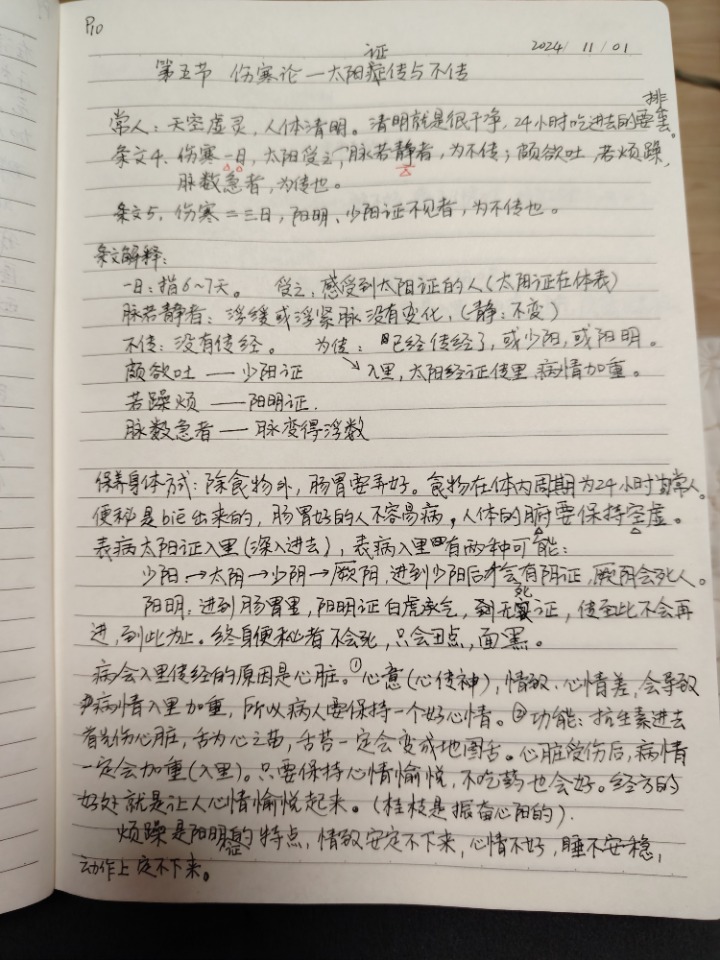 P10
2024/11/01
第五节 伤寒论—太阳证传与不传
常人：天空虚灵，人体清明。清明就是很干净，24小时吃进去的要排
条文4、伤寒一日，太阳受之，脉若静者，为不传；颇欲吐，若烦躁，
脉数急者，为传也。
条文5、伤寒二三日，阳明、少阳证不见者，为不传也。
条文解释：
一日：指6~7天。 受之，感受到太阳证的人（太阳证在体表）
脉若静者：浮缓或浮紧脉没有变化，（静：不变）
不传：没有传经。 为传：已经传经了，或少阳，或阳明。
颇欲吐——少阳证 ↘入里，太阳经证传里，病情加重。
若躁烦——阳明证.
脉数急者——脉变得浮数
保养身体方式：除食物外，肠胃要弄好。食物在体内周期为24小时为常人。
便秘是bie出来的，肠胃好的人不容易病，人体的腑要保持空虚。
表病太阳证入里（深入进去），表病入里有两种可能：
少阳→太阴→少阴→厥阴，进到少阳后才会有阴证，厥阴会死人。
阳明：进到肠胃里，阳明证白虎承气，到无死证，传至此不会再
进，到此为止。终身便秘者不会死，只会丑点，面黑。
病会入里传经的原因是心脏。①心意（心传神），情致、心情差，会导致
病情入里加重，所以病人要保持一个好心情。②功能：抗生素进去
首先伤心脏，舌为心之苗，舌苔一定会变成地图舌。心脏受伤后，病情
一定会加重（入里）。只要保持心情愉悦，不吃药也会好。经方的
好处就是让人心情愉悦起来。（桂枝是振奋心阳的）.
烦躁是阳明证的特点，情致安定不下来，心情不好，睡不安稳，
动作上定不下来。